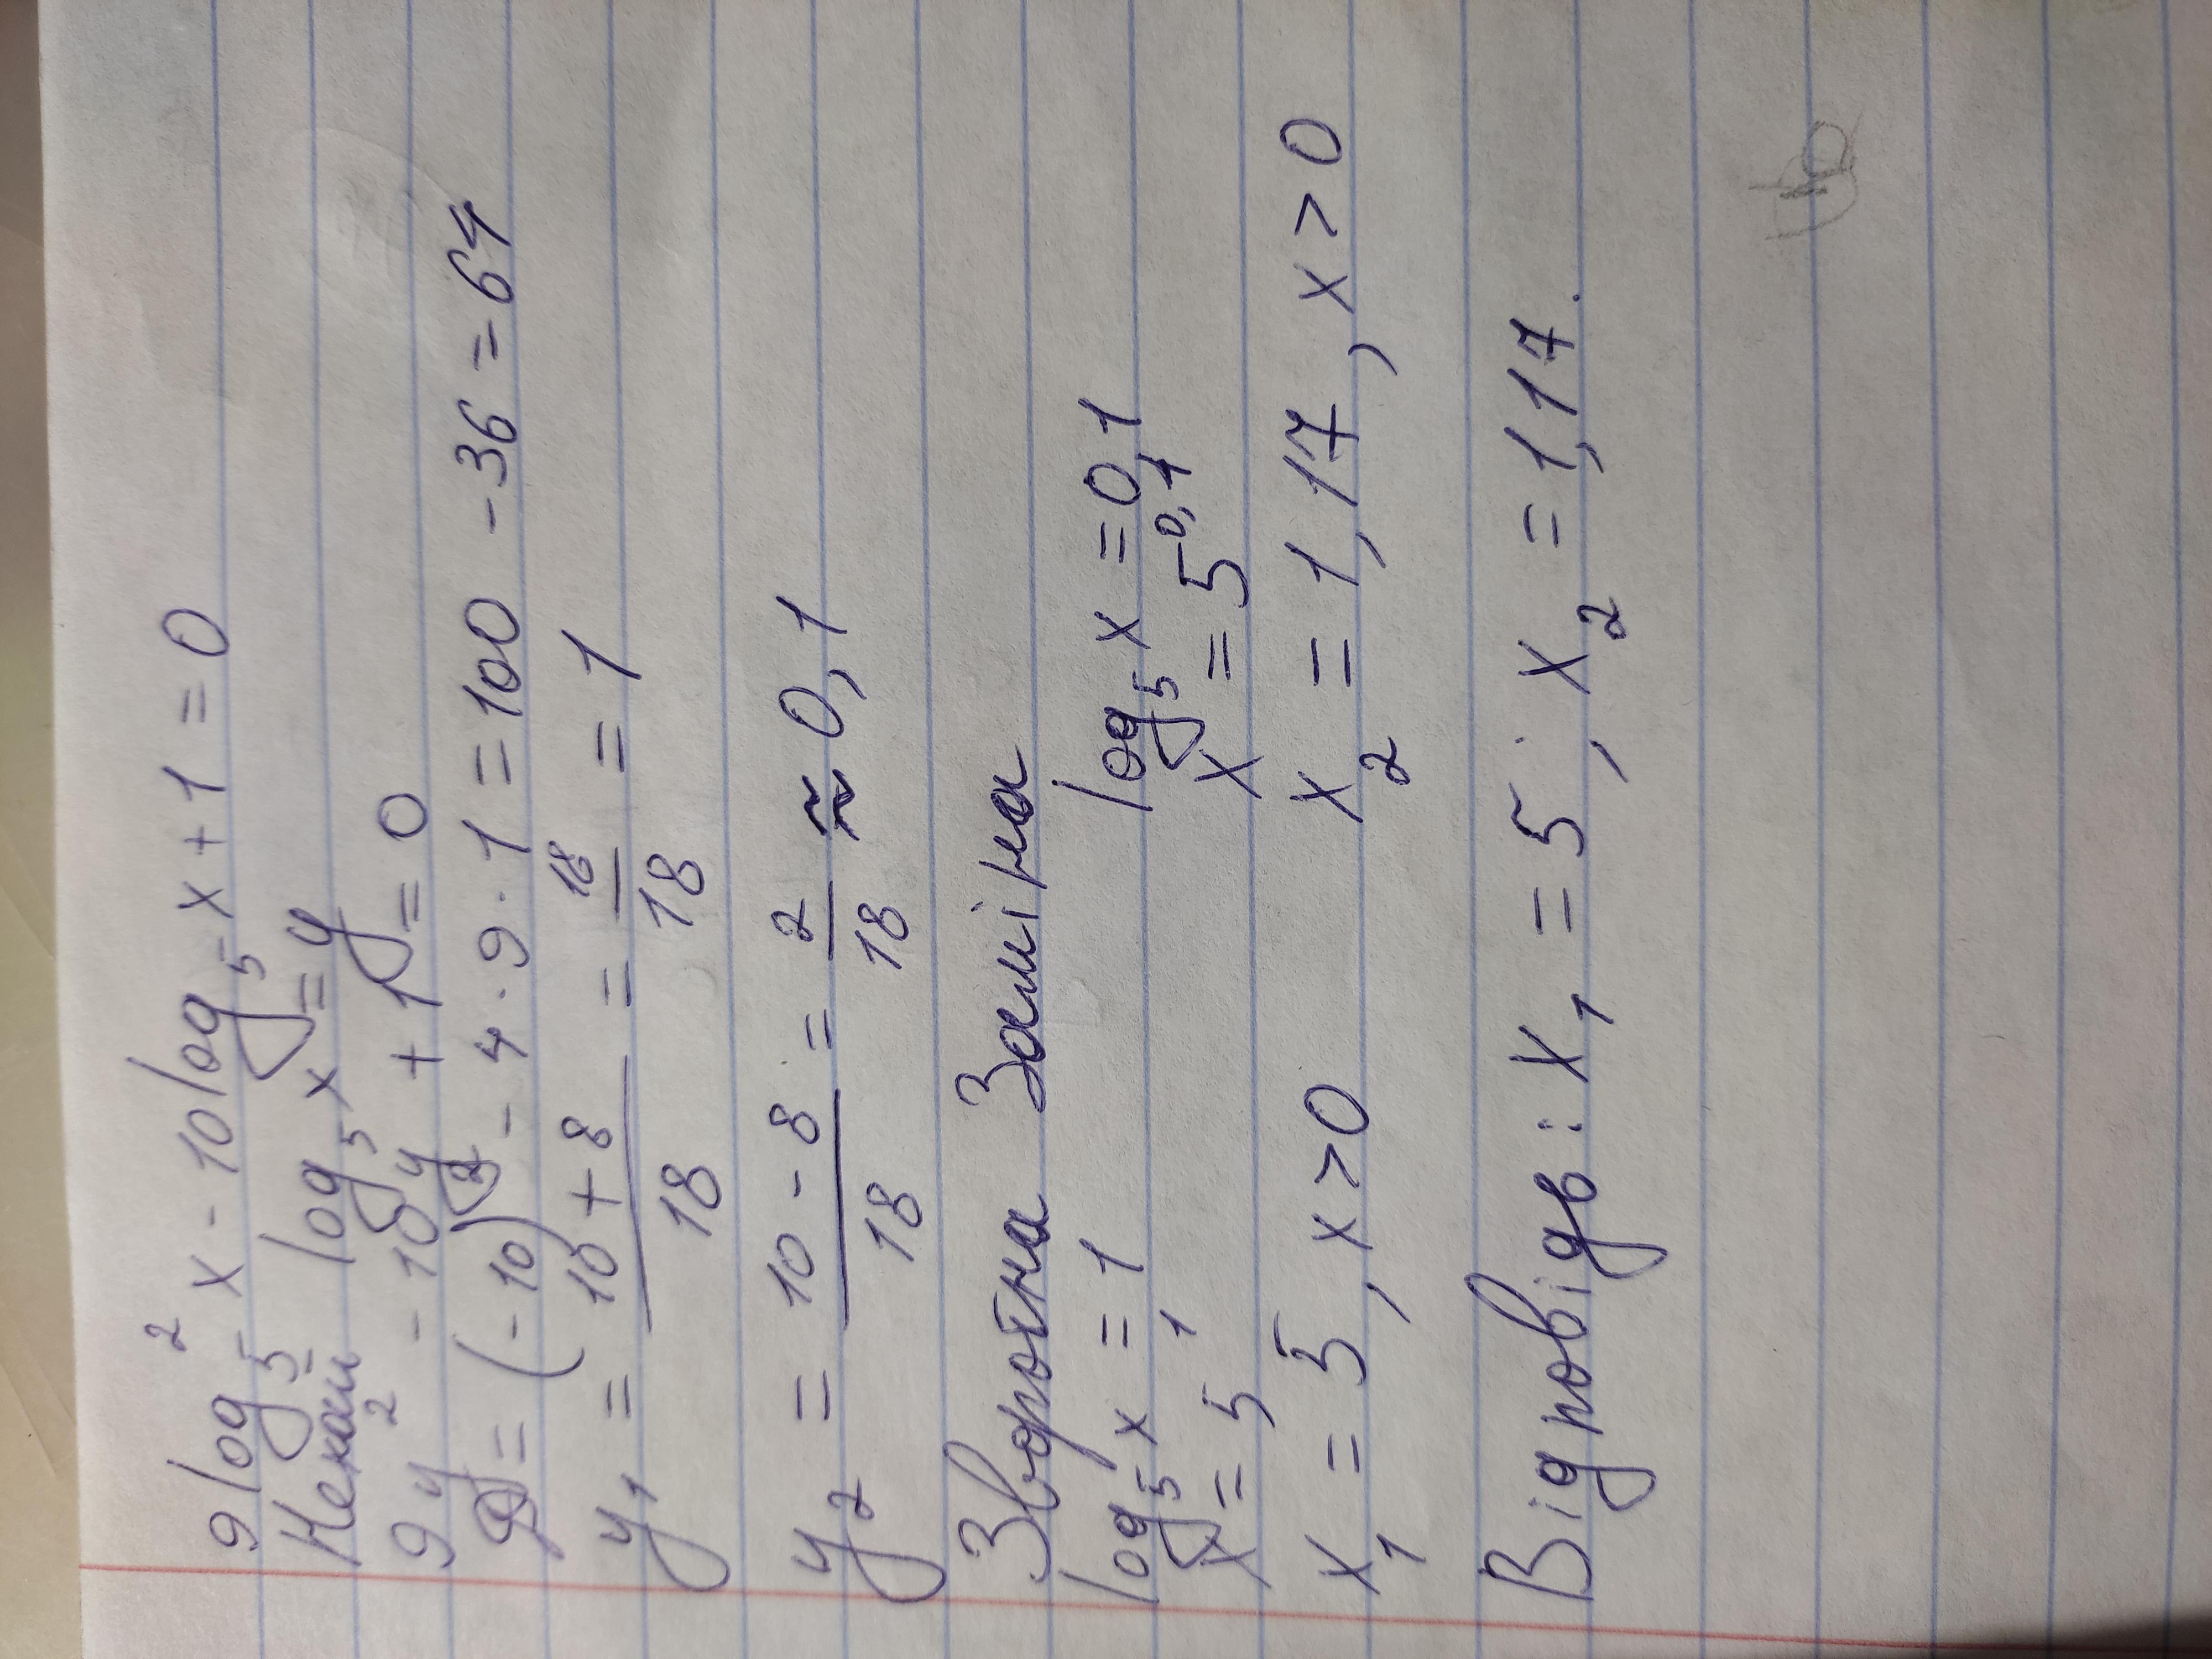 9log₅²x - 10log₅x + 1 = 0
Нехай log₅x = y
9y² - 10y + 1 = 0
D = (-10)² - 4·9·1 = 100 - 36 = 64
y₁ = (10 + 8)/18 = 18/18 = 1
y₂ = (10 - 8)/18 = 2/18 ≈ 0,1
Зворотна Заміна
log₅x = 1 log₅x = 0,1
x = 5¹ x = 5^0,1
x₁ = 5, x > 0 x₂ = 1,17, x > 0
Відповідь: x₁ = 5; x₂ = 1,17.